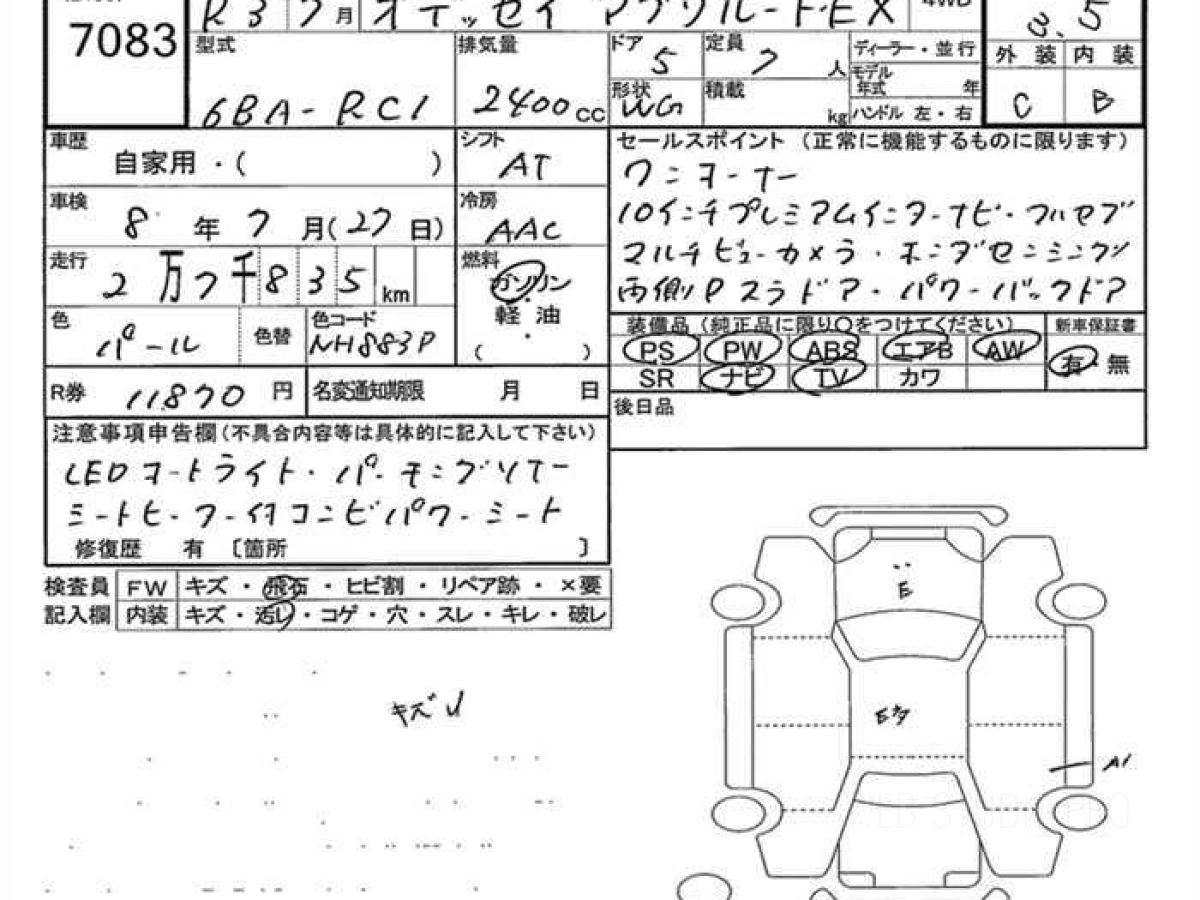 7083
R3 7月 オデッセイ アブソルートEX 4WD
3.5
型式 6BA-RC1
排気量 2400cc
ドア 5
定員 7人
ディーラー・並行
モデル年式 年
形状 WG
積載 kg
ハンドル 左・右
外装 C
内装 B
車歴 自家用・( )
シフト AT
車検 8年7月(27日)
冷房 AAC
走行 2万7千835km
燃料 ガソリン・軽油・( )
色 パール 色替
色コード NH883P
R券 11870円
名変通知期限 月 日
セールスポイント(正常に機能するものに限ります)
ワンオーナー
10インチプレミアムインターナビ・フルセグ
マルチビューカメラ・ホンダセンシング
両側Pスラドア・パワーバックドア
装備品(純正品に限り○をつけてください)
新車保証書
PS PW ABS エアB AW
SR ナビ TV カワ
有・無
後日品
注意事項申告欄(不具合内容等は具体的に記入して下さい)
LEDオートライト・パーキングソナー
シートヒーター付コンビパワーシート
修復歴 有〔箇所 〕
検査員 FW キズ・飛石・ヒビ割・リペア跡・×要
記入欄 内装 キズ・汚レ・コゲ・穴・スレ・キレ・破レ
キズ
E
A1